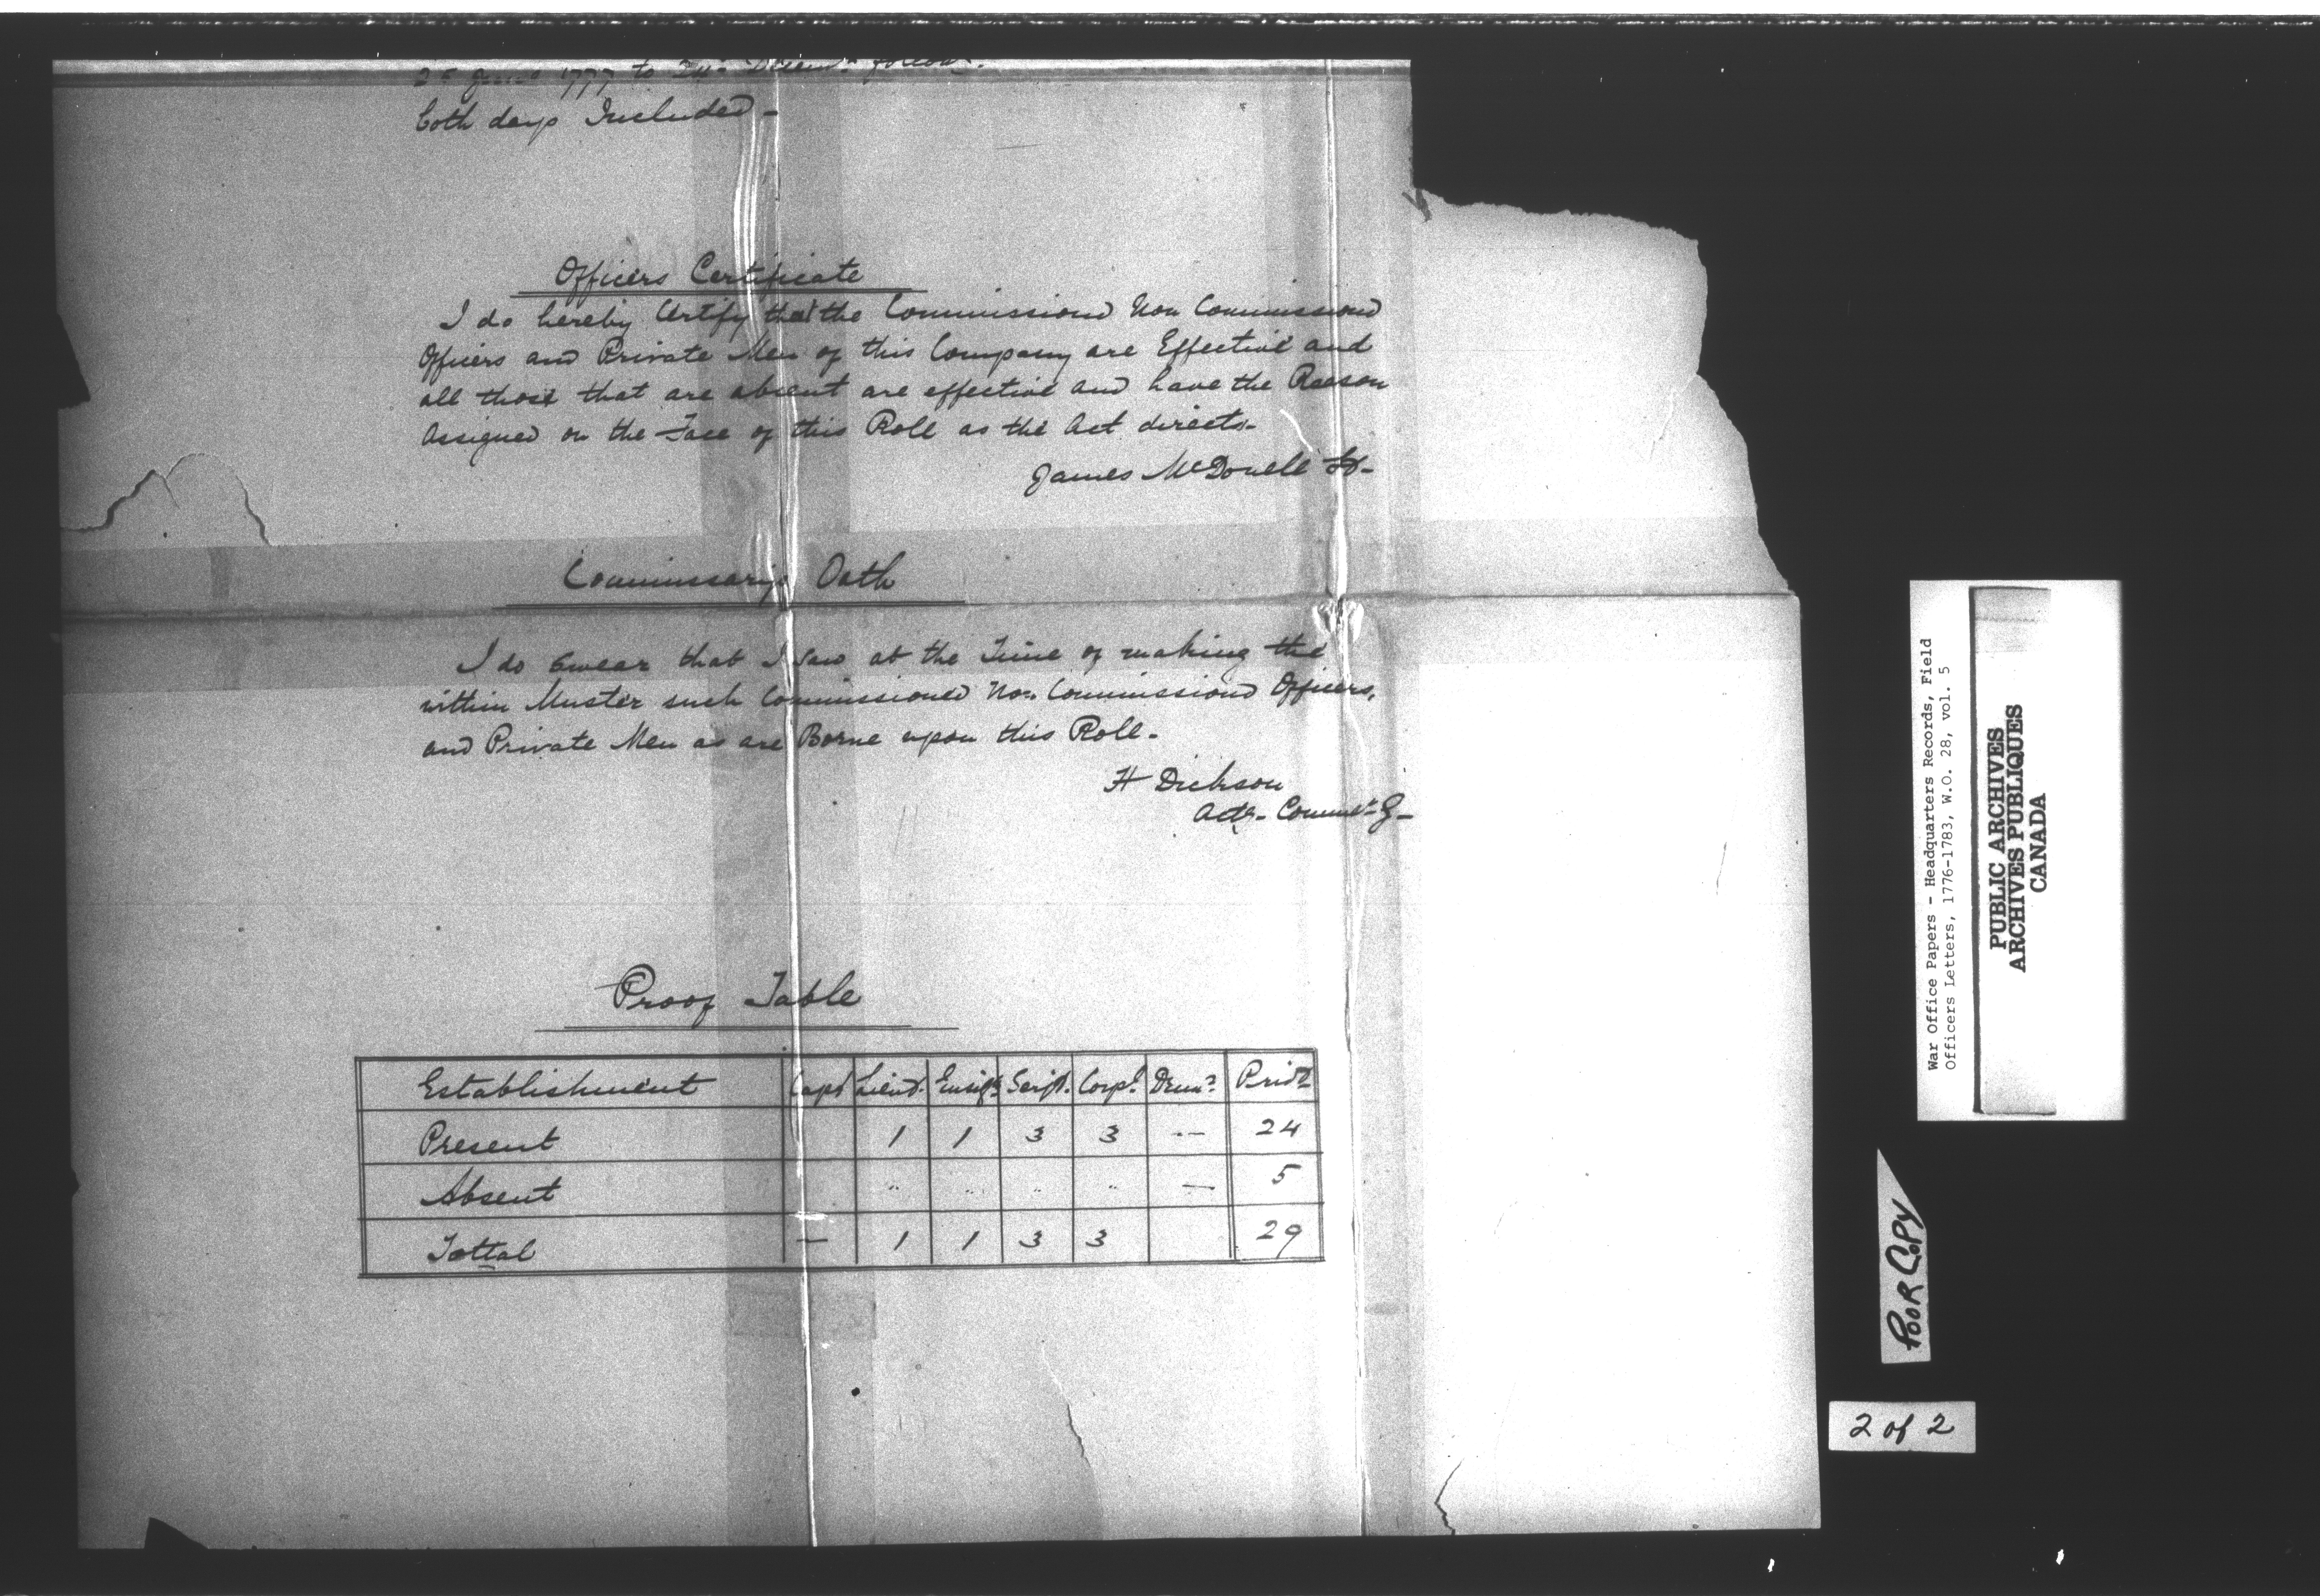 25 June 1777 to 24th Decemr followg.
both days Included -
Officers Certificate
I do hereby Certify that the Commissiond Non Commissiond
Officers and Private Men of this Company are Effective and
all those that are absent are effective and have the Reason
Assigned on the Face of this Roll as the Act directs-
James McDonell Lt-
Commissarys Oath
I do Swear that I saw at the Time of making the
within Muster such Commissioned Non Commissiond Officers,
and Private Men as are Borne upon this Roll -
H Dickson
Actg- Commy- G-
Proof Table
Establishment Capt Lieut. Ensign Serjt. Corpl. Drumr. Privt
Present 1 1 3 3 -- 24
Absent " " " " — 5
Tottal — 1 1 3 3 29
War Office Papers - Headquarters Records, Field
Officers Letters, 1776-1783, W.O. 28, vol. 5
PUBLIC ARCHIVES
ARCHIVES PUBLIQUES
CANADA
POOR COPY
2 of 2